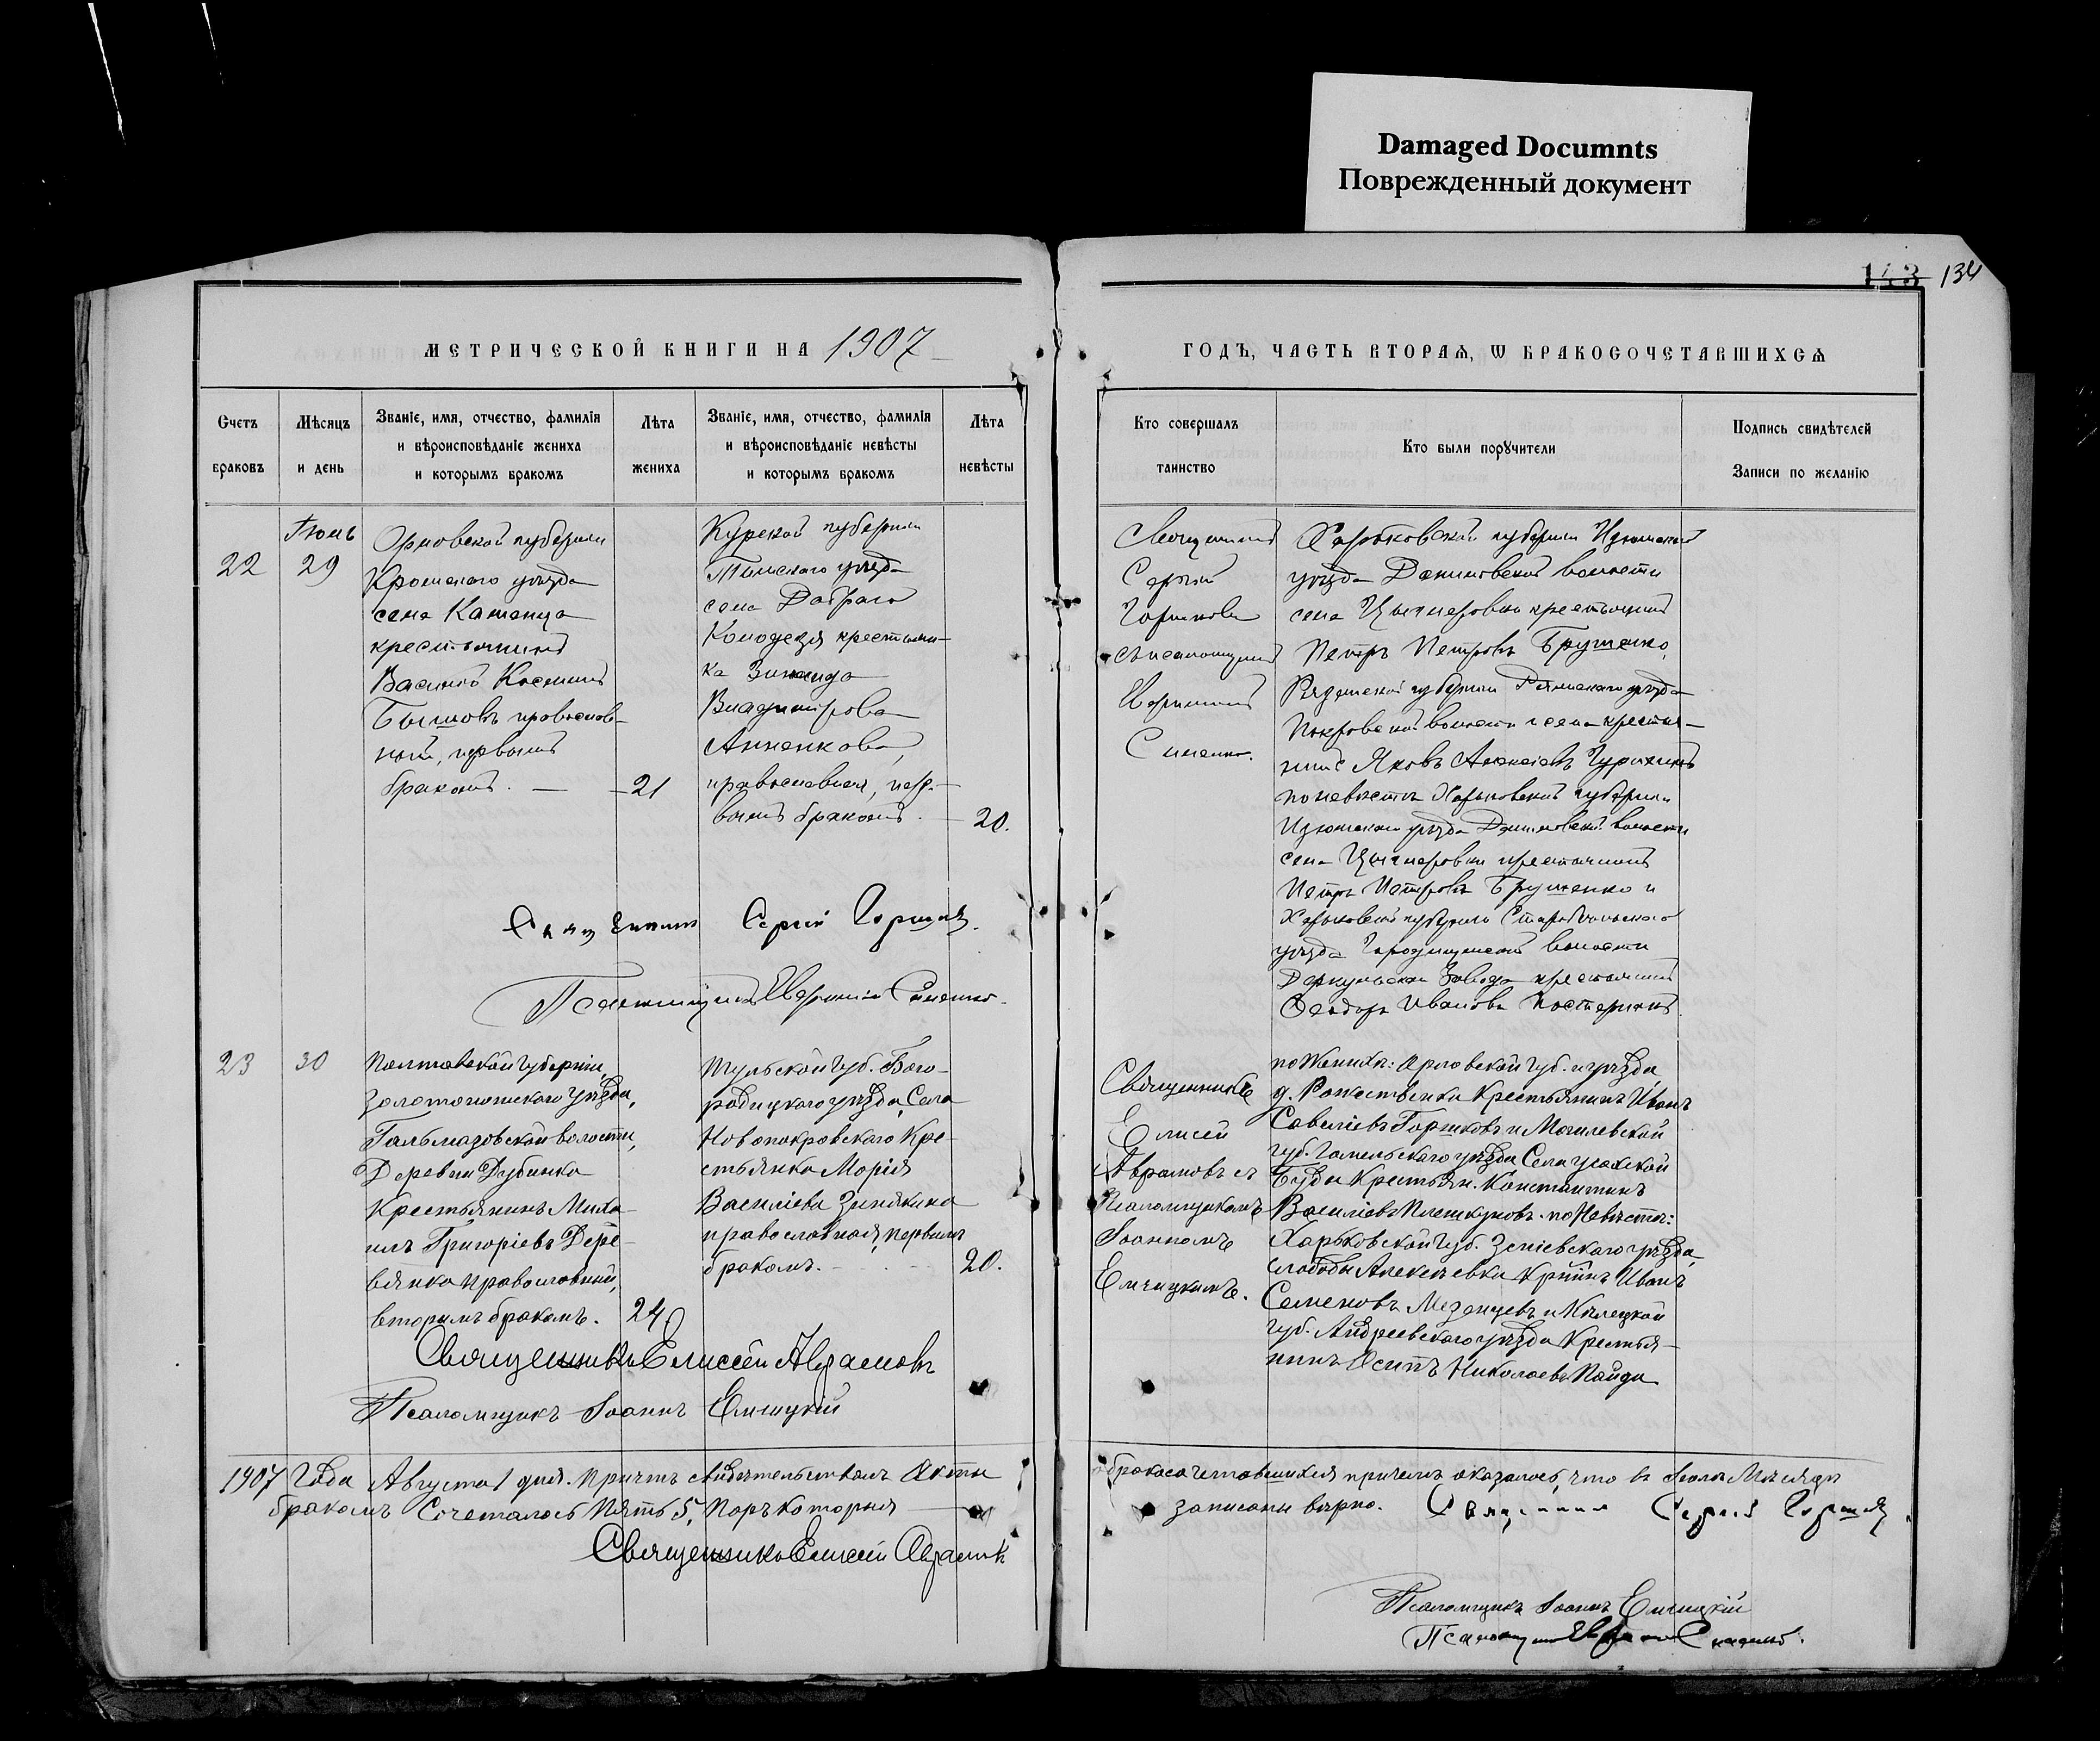 Damaged Documnts
Поврежденный документ
133 134
МЕТРИЧЕСКОЙ КНИГИ НА 1907
ГОДЪ, ЧАСТЬ ВТОРАѦ, Ѡ БРАКОСОЧЕТАВШИХСѦ
Счетъ
браковъ
Мѣсяцъ
и день
Званіе, имя, отчество, фамилія
и вѣроисповѣданіе жениха
и которымъ бракомъ
Лѣта
жениха
Званіе, имя, отчество, фамилія
и вѣроисповѣданіе невѣсты
и которымъ бракомъ
Лѣта
невѣсты
Кто совершалъ
таинство
Кто были поручители
Подпись свидѣтелей
Записи по желанію
22
Іюль
29
Орловской губерніи
Кромскаго уѣзда
села Каменца
крестьянинъ
Василій Косминъ
православ-
ный, первымъ
бракомъ.
21
Курской губерніи
Тимскаго уѣзда
села Добраго
Колодезя крестьян-
ка Зинаида
Владимірова
Анненкова,
православная, пер-
вымъ бракомъ.
20.
Священникъ
Сергій
съ псаломщикомъ
Харьковской губерніи Изюмской
уѣзда волости
села крестьянинъ
Петръ Петровъ Брушенко,
губерніи уѣзда
Покровской волости и села крестья-
нинъ Яковъ
по невѣстѣ Харьковской губерніи
Изюмскаго уѣзда волости
села крестьянинъ
Петръ Петровъ Брушенко и
Харьковской губерніи Старобѣльскаго
уѣзда Городищенской волости
завода крестьянинъ
Ѳеодоръ Ивановъ
Священникъ Сергій
Псаломщикъ
23
30
Полтавской губерніи,
Золотоношскаго уѣзда,
Гельмязовской волости,
Деревни Дубинка
Крестьянинъ Миха-
илъ Григоріевъ Дере-
вянко православный,
вторымъ бракомъ.
24
Тульской губ. Бого-
родицкаго уѣзда, Села
Новопокровскаго Кре-
стьянка Марія
Василіева Зинякина
православная, первымъ
бракомъ.
20.
Священникъ
Елисей
Аврамовъ съ
Псаломщикомъ
Іоанномъ
по Женихѣ: Орловской губ. и уѣзда
д. Рожественка Крестьянинъ Иванъ
Савеліевъ Горшковъ и Могилевской
губ. Гомельскаго уѣзда Села
Буды Крестьян. Константинъ
Василіевъ по Невѣстѣ:
Харьковской губ. Зміевскаго уѣзда,
слободы Алексѣевки Кр-нинъ Иванъ
Семеновъ Мезенцевъ и Кѣлецкой
губ. Андреевскаго уѣзда Крестья-
нинъ Осипъ Николаевъ Пайда
Священникъ Елисей Аврамовъ
Псаломщикъ Іоаннъ
1907 Года Августа 1 дня. Причтъ свидѣтельствовалъ Акты
о бракосочетавшихся причемъ оказалось, что въ Іюлѣ Мѣсяцѣ
бракомъ Сочеталось Пять 5, Паръ которыя
записаны вѣрно. Священникъ Сергій
Священникъ Елисей Аврамовъ
Псаломщикъ Іоаннъ
Псаломщикъ